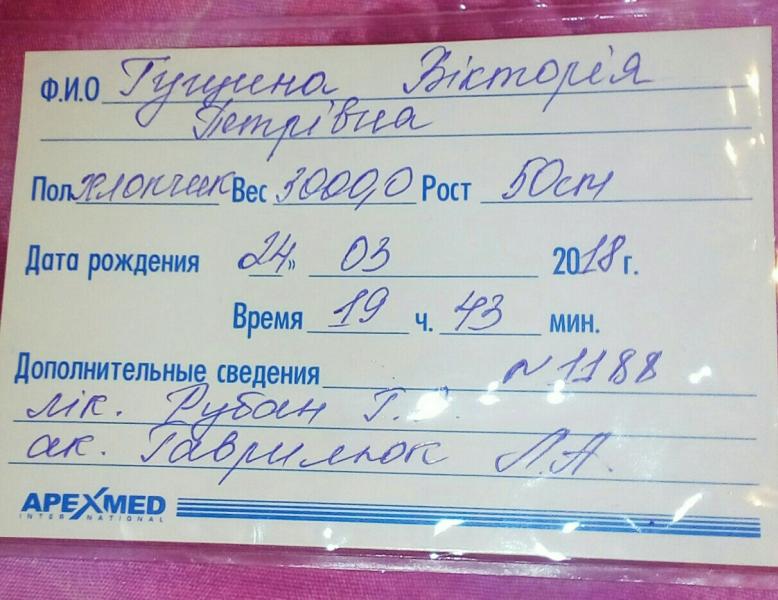 Ф.И.О Гущина Вікторія
Петрівна
Пол хлопчик Вес 3000,0 Рост 50см
Дата рождения 24 » 03 2018 г.
Время 19 ч. 43 мин.
Дополнительные сведения N 1188
лік. Рубан Г.
ак. Гаврилюк Л.А.
APEXMED
INTERNATIONAL